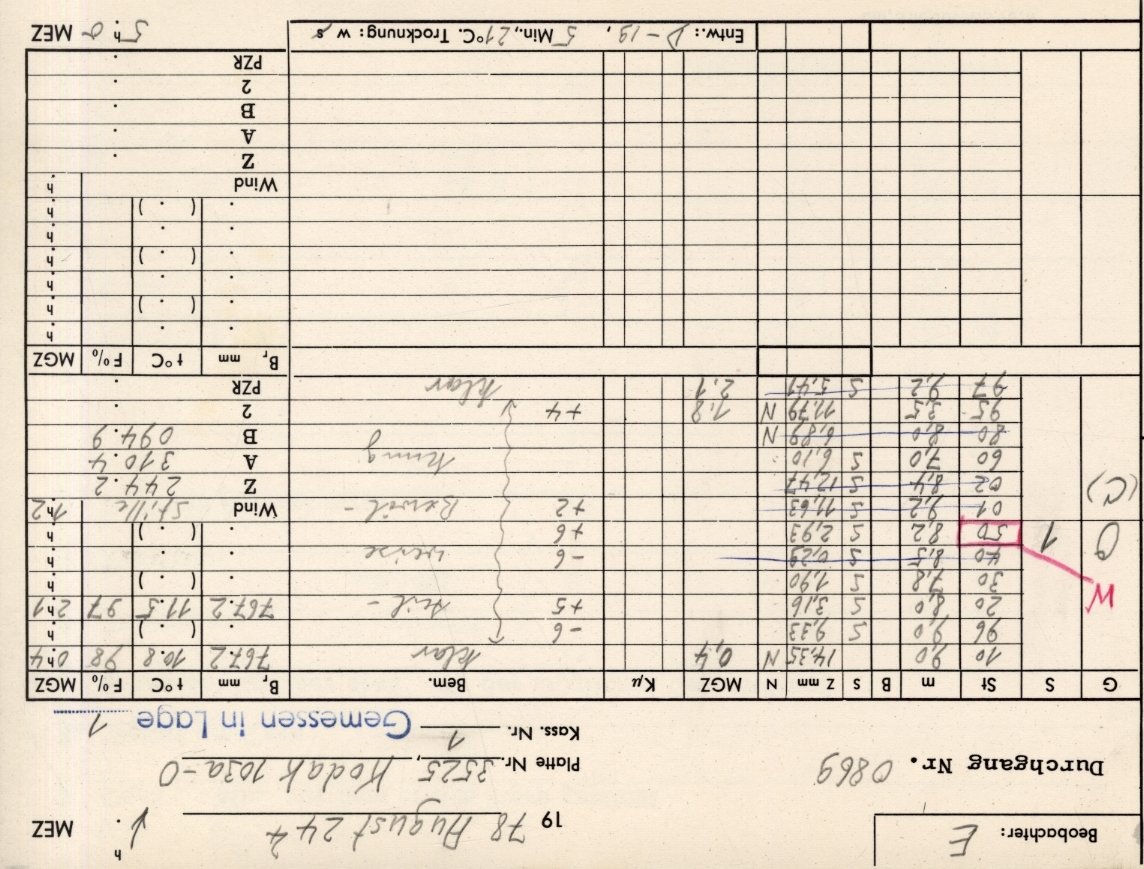 Beobachter: E
19 78 August 24 h . MEZ
Durchgang Nr. 0869
Platte Nr. 3525, Kodak 103a-O
Kass. Nr. 1 Gemessen in Lage 1
G S St m B S Z mm N MGZ Kμ Bem. Br mm t°C F% MGZ
10 9,0 14,35 N 0,4 klar 767.2 10.8 98 0h4
96 9,0 S 9,33 -6 ( . ) h
W 20 8,0 S 3,16 +5 teil- 767.2 11.5 97 2h1
30 7,8 S 1,90 ( . ) h
40 8,5 S 0,29 -6 weise h
G 1 50 8,2 S 2,93 +6 ( . ) h
01 9,2 S 11,63 +2 Bewöl- Wind Stille 1h2
(C) 02 8,4 S 12,47 Z 244.2
60 7,0 S 6,10 kung A 310.4
80 8,0 6,89 N B 094.9
95 3,5 11,79 N 1,8 +4 2 .
97 9,2 S 5,41 2,1 klar PZR .
Br mm t°C F% MGZ
. h
. ( . ) h
. h
. ( . ) h
. h
. ( . ) h
Wind h
Z .
A .
B .
2 .
PZR .
Entw.: D-19, 5 Min., 21°C. Trocknung: w s 5h.0 MEZ